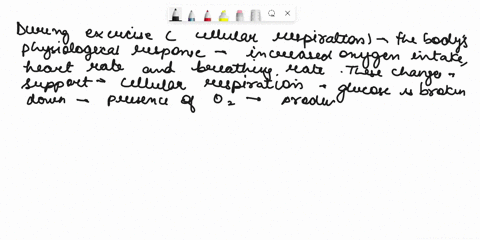 During excercise ( cellular respiration) → the body's
physiological response → increased oxygen intake,
heart rate and breathing rate. These change →
support → cellular respiration → glucose is broken
down → presence of O₂ → produ